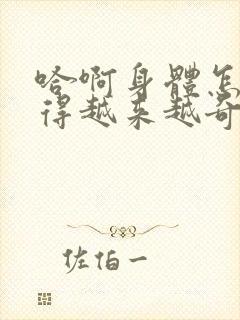 哈啊身體怎
得越来越奇
佐伯一